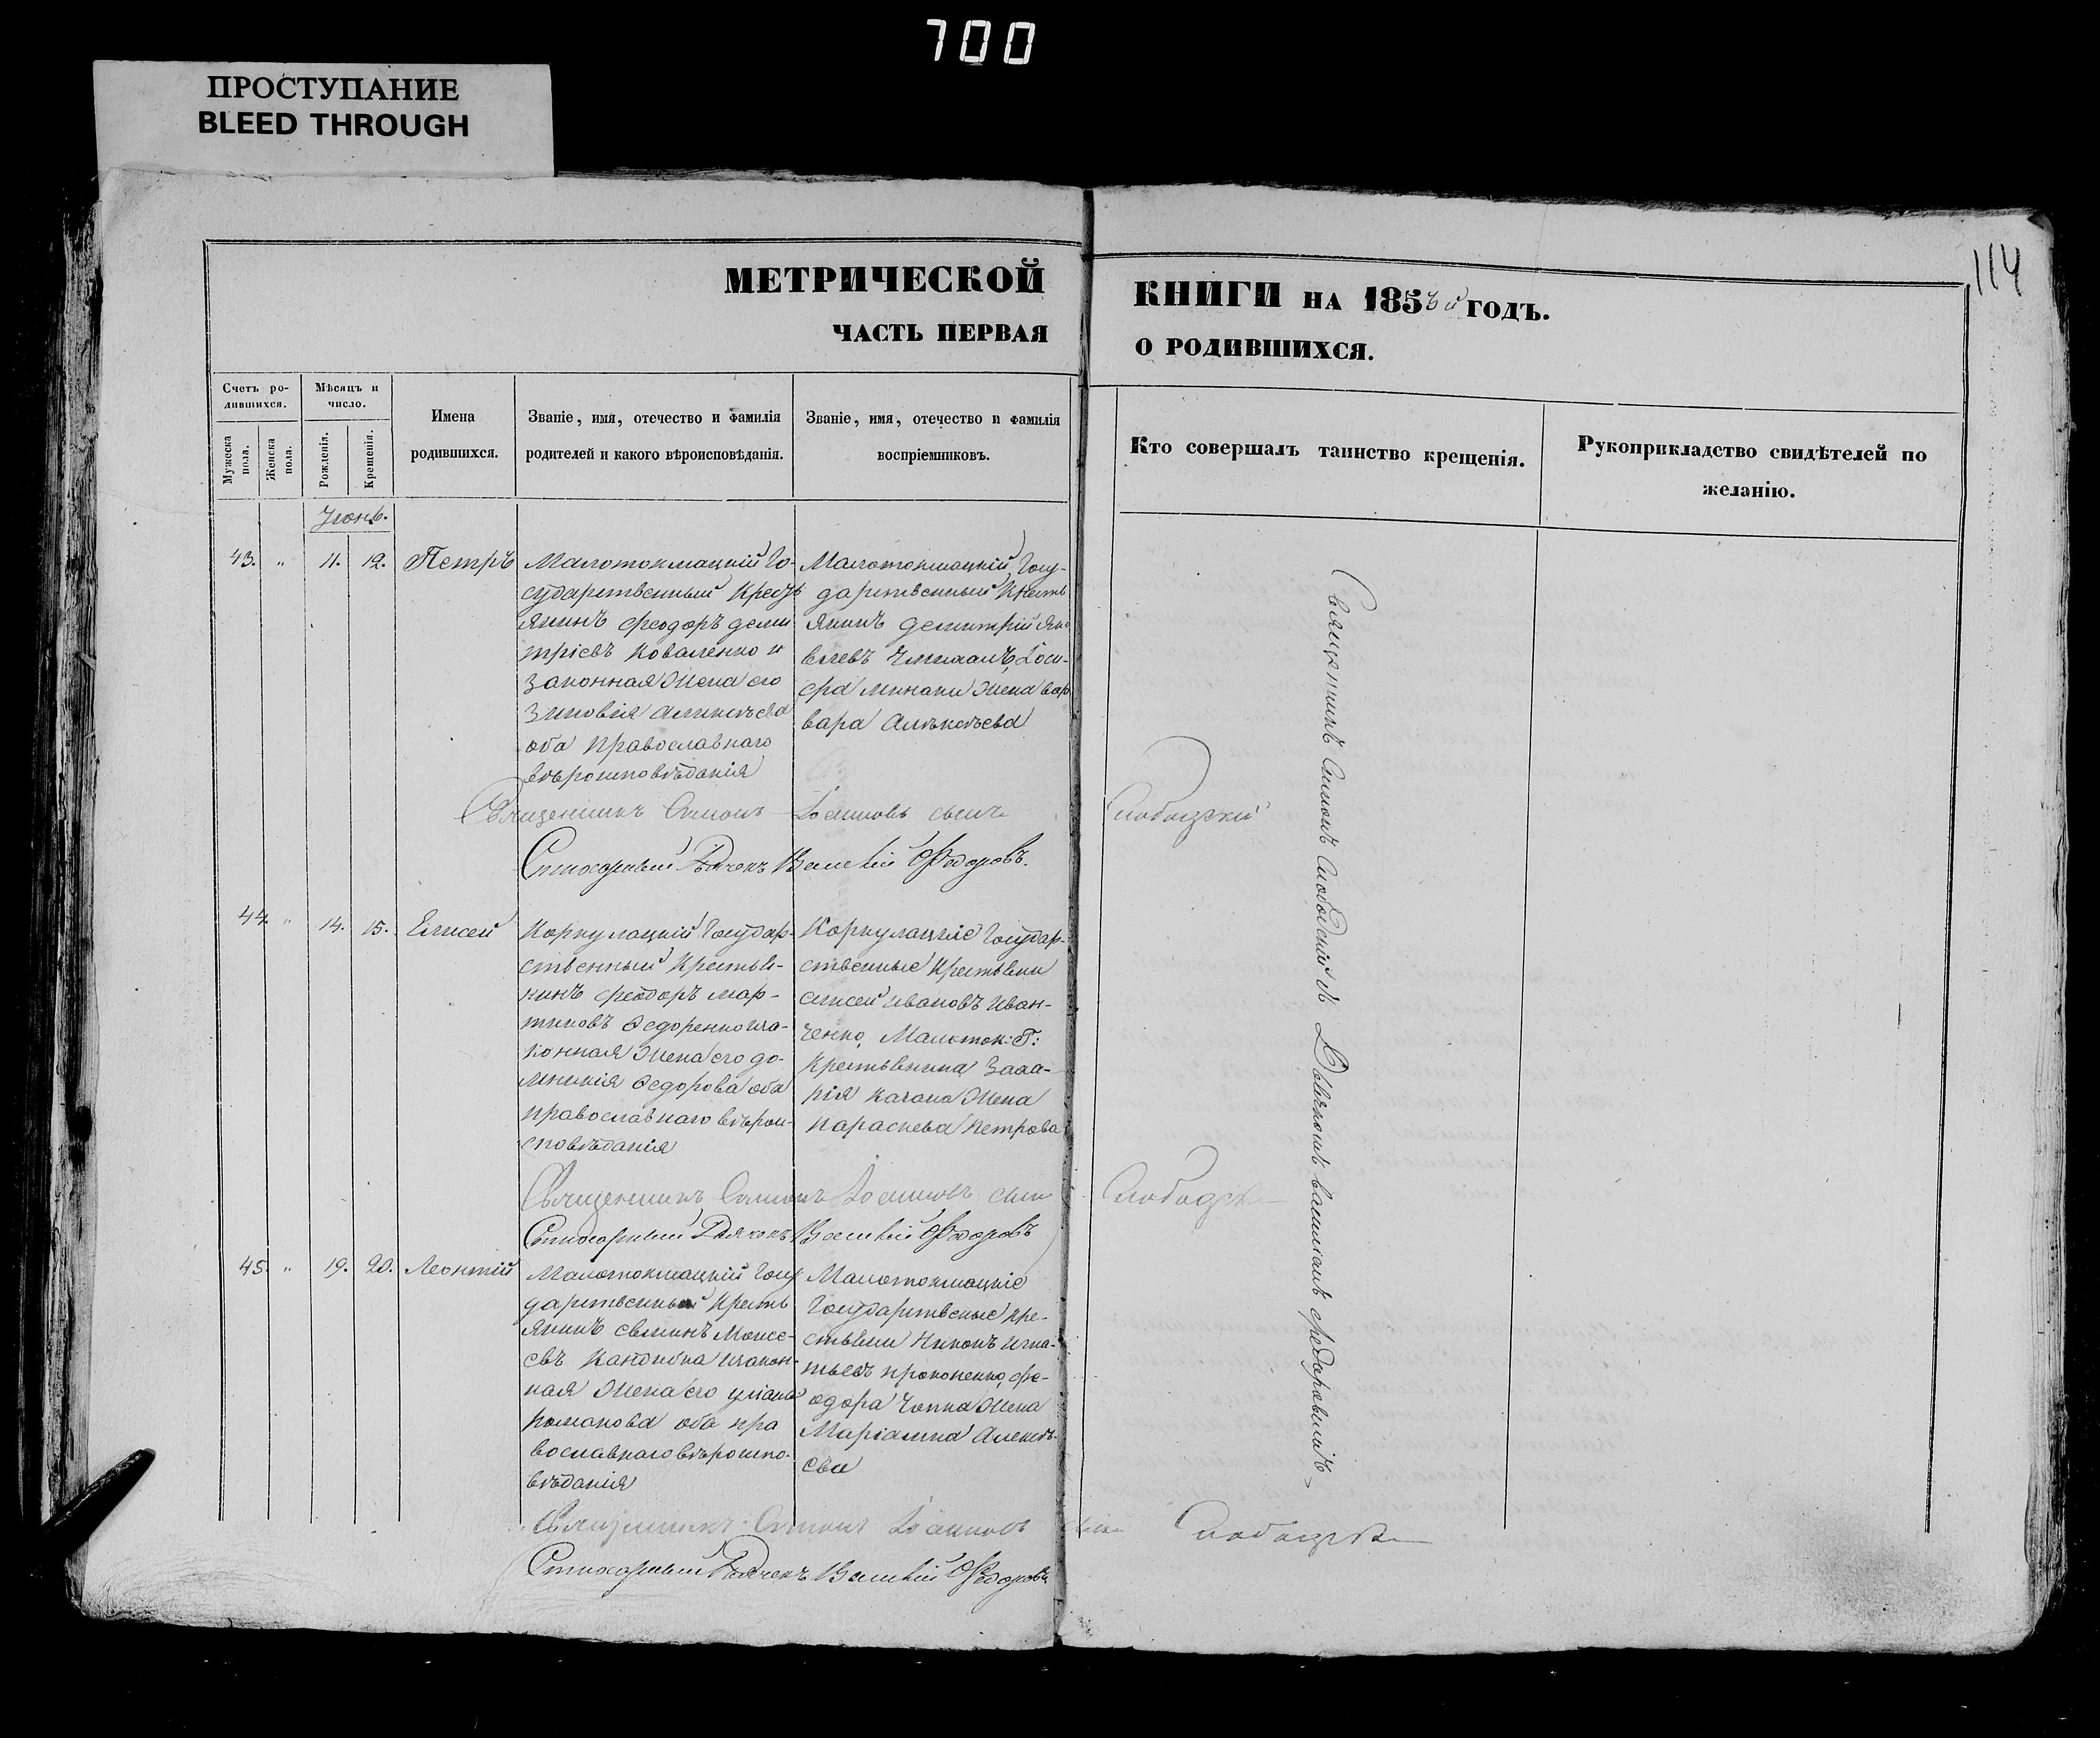 700
ПРОСТУПАНИЕ
BLEED THROUGH
114
МЕТРИЧЕСКОЙ
КНИГИ НА 185 ГОДЪ.
ЧАСТЬ ПЕРВАЯ
О РОДИВШИХСЯ.
Счетъ ро-
дившихся.
Мѣсяцъ и
число.
Мужеска
пола.
Женска
пола.
Рожденія.
Крещенія.
Имена
родившихся.
Званіе, имя, отечество и фамилія
родителей и какого вѣроисповѣданія.
Званіе, имя, отечество и фамилія
воспріемниковъ.
Кто совершалъ таинство крещенія.
Рукоприкладство свидѣтелей по
желанію.
Іюнь.
43. " 11. 12. Петръ
Малотокмацкій Го-
сударственный Крестъ
янинъ Феодоръ Дими
тріевъ Коваленко и
Законная Жена его
Зиновія
оба Православнаго
вѣроисповѣданія
Малотокмацкій Госу-
дарственный Кресть
янинъ Димитрій Яко
влевъ Іоси-
фа Жена Вар
вара Алѣксѣева
Священникъ Симонъ Іоанновъ сынъ Слободскій
Стихарный Дьячекъ Василій Федоровъ.
44. " 14. 15. Елисей
Коркулацкій Государ-
ственный Крестья-
нинъ Феодоръ Мар-
тиновъ Федоренко иза-
конная Жена его До-
мникія Федорова оба
православнаго вѣрои-
сповѣданія
Коркулацкіе Государ-
ственные Крестьяни
Елисей Ивановъ Иван-
ченко, Малоток: Г:
Крестьянина Заха-
рія Жена
Параскева Петрова
Священникъ Симонъ Іоанновъ сынъ Слободск
Стихарный Дьячекъ Василій Федоровъ
45. " 19. 20. Леонтій
Малотокмацкій Госу
дарственный Кресть
янинъ Моисе-
евъ изакон-
ная Жена его
Романова оба пра
вославнаго вѣроиспо-
вѣданія
Малотокмацкіе
Государственые Кре-
стьяни Никонъ Игна-
тьевъ Прокопенко, Фе-
одора Жена
Маріамна Алексѣ-
ева
Священникъ Симонъ Іоанновъ сынъ Слободск
Стихарный Дьячекъ Василій Федоровъ
Священникъ Симонъ Слободскій съ Дьячкомъ Василіемъ Федоровымъ